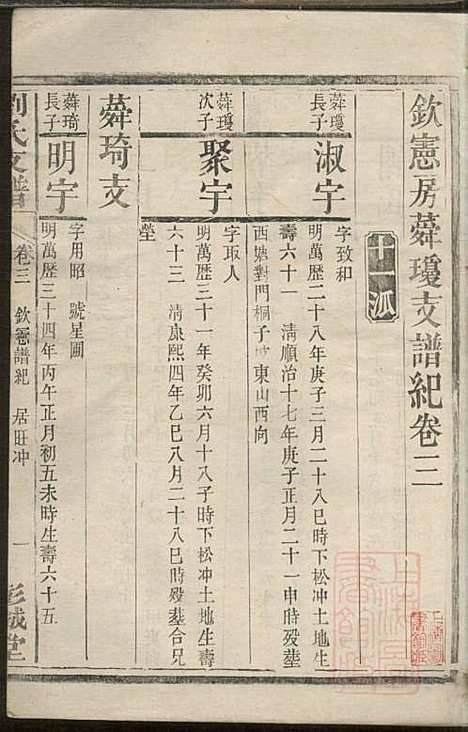 欽憲房蕣瓊支譜紀卷三
十一派
蕣瓊長子
淑宇
字致和
明萬歷二十八年庚子三月二十八巳時下松冲土地生
壽六十一 清順治十七年庚子正月二十一申時殁塟
西 對門桐子 東山西向
蕣瓊次子
聚宇
字取人
明萬歷三十一年癸卯六月十八子時下松冲土地生壽
六十三 清康熙四年乙巳八月二十八巳時殁塟合兄
塋
蕣琦支
蕣琦長子
明宇
字用昭 號星圃
明萬歷三十四年丙午正月初五未時生壽六十五
劉氏支譜 卷三 欽憲譜紀 居旺冲 一 彭城堂